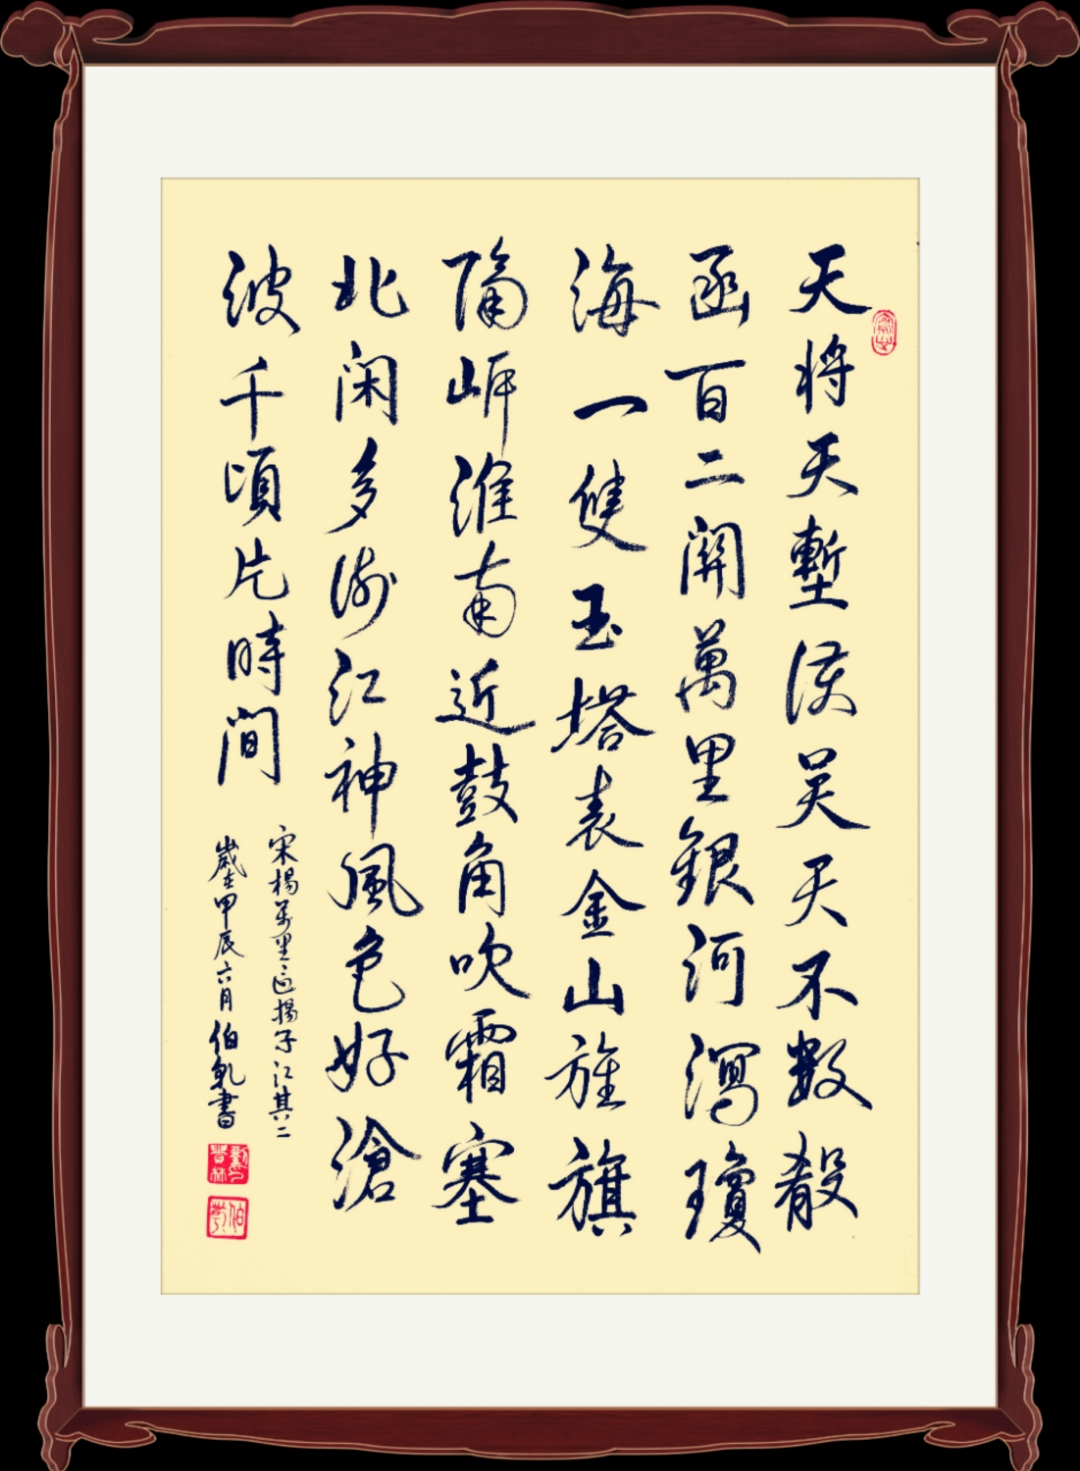 天将天塹護吴天不数殽
函百二關萬里銀河瀉瓊
海一雙玉塔表金山旌旗
隔岸淮南近鼓角吹霜塞
北闲多謝江神風色好滄
波千頃片時間
宋楊萬里過揚子江其二
歲在甲辰六月伯乾書